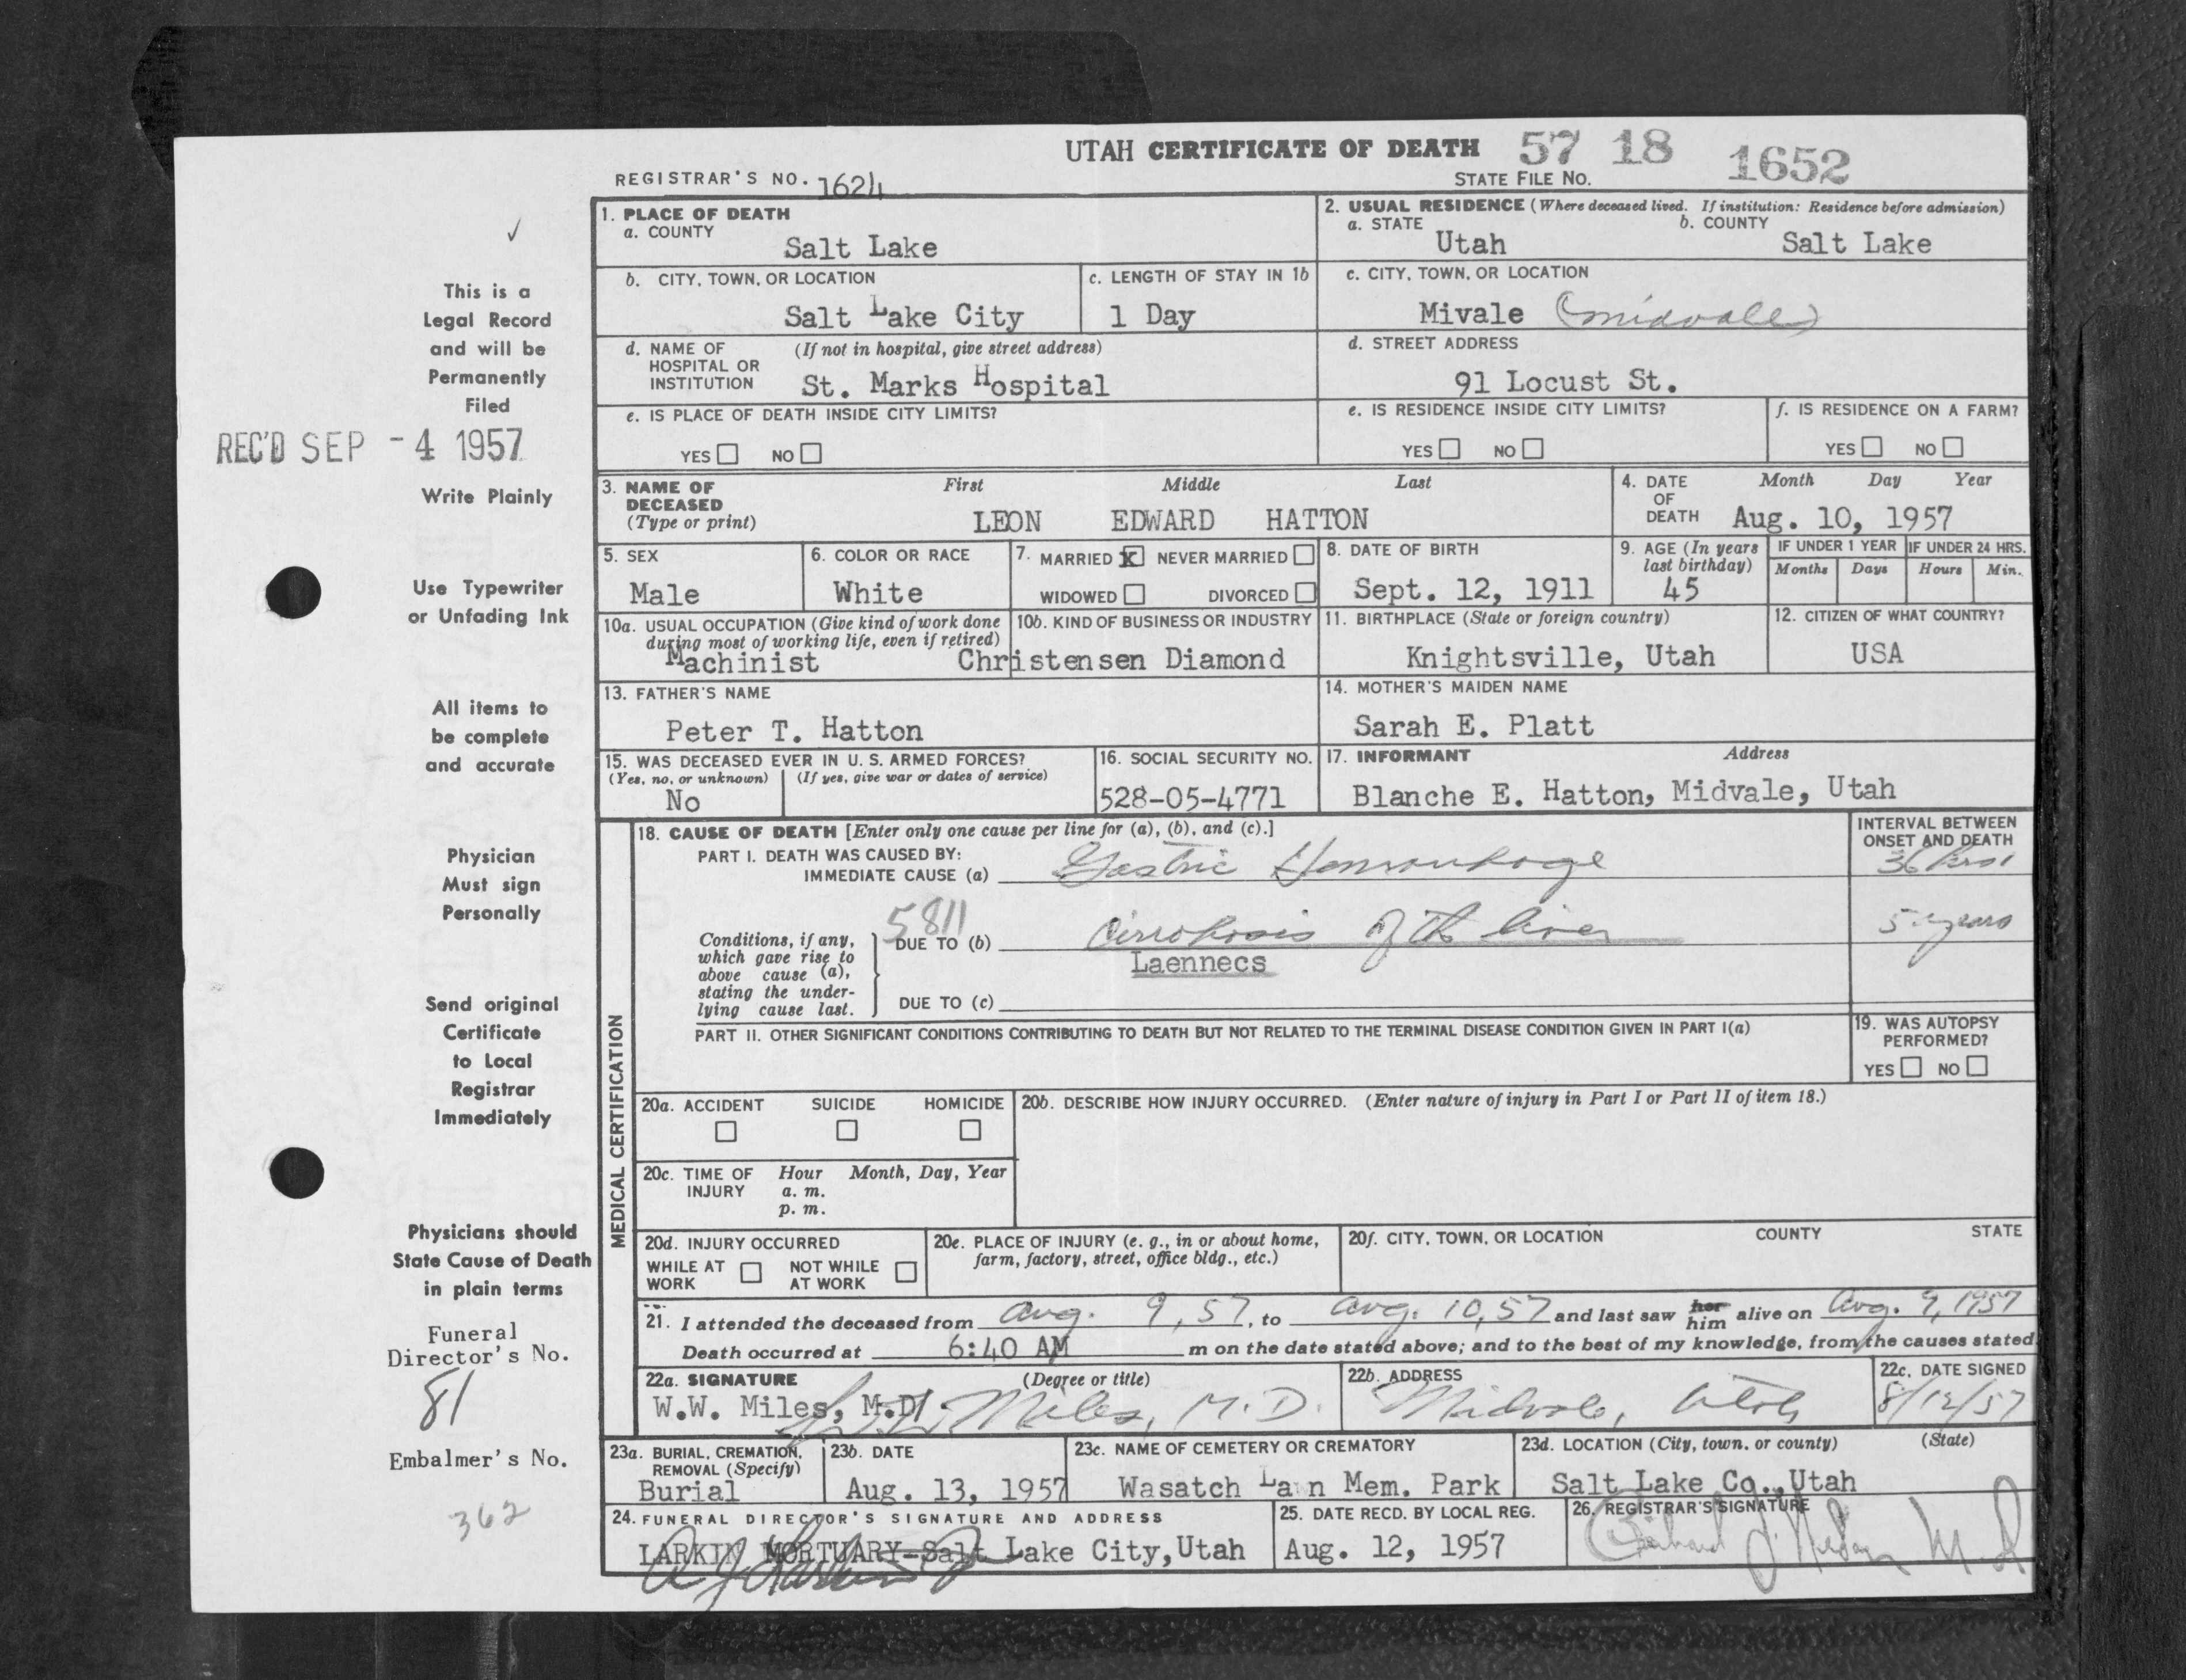 UTAH CERTIFICATE OF DEATH 57 18 1652
REGISTRAR'S NO. 1624
STATE FILE NO.
✓
This is a
Legal Record
and will be
Permanently
Filed
REC'D SEP -4 1957
Write Plainly
Use Typewriter
or Unfading Ink
All items to
be complete
and accurate
Physician
Must sign
Personally
Send original
Certificate
to Local
Registrar
Immediately
Physicians should
State Cause of Death
in plain terms
Funeral
Director's No.
81
Embalmer's No.
362
1. PLACE OF DEATH
a. COUNTY
Salt Lake
2. USUAL RESIDENCE (Where deceased lived. If institution: Residence before admission)
a. STATE b. COUNTY
Utah Salt Lake
b. CITY, TOWN, OR LOCATION
Salt Lake City
c. LENGTH OF STAY IN 1b
1 Day
c. CITY, TOWN, OR LOCATION
Mivale (midvale)
d. NAME OF (If not in hospital, give street address)
HOSPITAL OR
INSTITUTION St. Marks Hospital
d. STREET ADDRESS
91 Locust St.
e. IS PLACE OF DEATH INSIDE CITY LIMITS?
YES NO
e. IS RESIDENCE INSIDE CITY LIMITS?
YES NO
f. IS RESIDENCE ON A FARM?
YES NO
3. NAME OF First Middle Last
DECEASED
(Type or print) LEON EDWARD HATTON
4. DATE Month Day Year
OF
DEATH Aug. 10, 1957
5. SEX
Male
6. COLOR OR RACE
White
7. MARRIED X NEVER MARRIED
WIDOWED DIVORCED
8. DATE OF BIRTH
Sept. 12, 1911
9. AGE (In years
last birthday)
45
IF UNDER 1 YEAR IF UNDER 24 HRS.
Months Days Hours Min.
10a. USUAL OCCUPATION (Give kind of work done
during most of working life, even if retired)
Machinist
10b. KIND OF BUSINESS OR INDUSTRY
Christensen Diamond
11. BIRTHPLACE (State or foreign country)
Knightsville, Utah
12. CITIZEN OF WHAT COUNTRY?
USA
13. FATHER'S NAME
Peter T. Hatton
14. MOTHER'S MAIDEN NAME
Sarah E. Platt
15. WAS DECEASED EVER IN U. S. ARMED FORCES?
(Yes, no, or unknown) (If yes, give war or dates of service)
No
16. SOCIAL SECURITY NO.
528-05-4771
17. INFORMANT Address
Blanche E. Hatton, Midvale, Utah
MEDICAL CERTIFICATION
18. CAUSE OF DEATH [Enter only one cause per line for (a), (b), and (c).]
INTERVAL BETWEEN
ONSET AND DEATH
PART I. DEATH WAS CAUSED BY:
IMMEDIATE CAUSE (a) Gastric Hemorrhage 36 hrs
5811
DUE TO (b) Cirrhosis of the liver 5 years
Laennecs
Conditions, if any,
which gave rise to
above cause (a),
stating the under-
lying cause last.
DUE TO (c)
PART II. OTHER SIGNIFICANT CONDITIONS CONTRIBUTING TO DEATH BUT NOT RELATED TO THE TERMINAL DISEASE CONDITION GIVEN IN PART I(a)
19. WAS AUTOPSY
PERFORMED?
YES NO
20a. ACCIDENT SUICIDE HOMICIDE
20b. DESCRIBE HOW INJURY OCCURRED. (Enter nature of injury in Part I or Part II of item 18.)
20c. TIME OF Hour Month, Day, Year
INJURY a. m.
p. m.
20d. INJURY OCCURRED
WHILE AT NOT WHILE
WORK AT WORK
20e. PLACE OF INJURY (e. g., in or about home,
farm, factory, street, office bldg., etc.)
20f. CITY, TOWN, OR LOCATION COUNTY STATE
21. I attended the deceased from Aug. 9, 57, to Aug. 10, 57 and last saw her him alive on Aug. 9, 1957
Death occurred at 6:40 AM m on the date stated above; and to the best of my knowledge, from the causes stated
22a. SIGNATURE (Degree or title)
W.W. Miles, M.D. W.W. Miles, M.D.
22b. ADDRESS
Midvale, Utah
22c. DATE SIGNED
8/12/57
23a. BURIAL, CREMATION,
REMOVAL (Specify)
Burial
23b. DATE
Aug. 13, 1957
23c. NAME OF CEMETERY OR CREMATORY
Wasatch La n Mem. Park
23d. LOCATION (City, town, or county) (State)
Salt Lake Co., Utah
24. FUNERAL DIRECTOR'S SIGNATURE AND ADDRESS
LARKIN MORTUARY-Salt Lake City, Utah
25. DATE RECD. BY LOCAL REG.
Aug. 12, 1957
26. REGISTRAR'S SIGNATURE